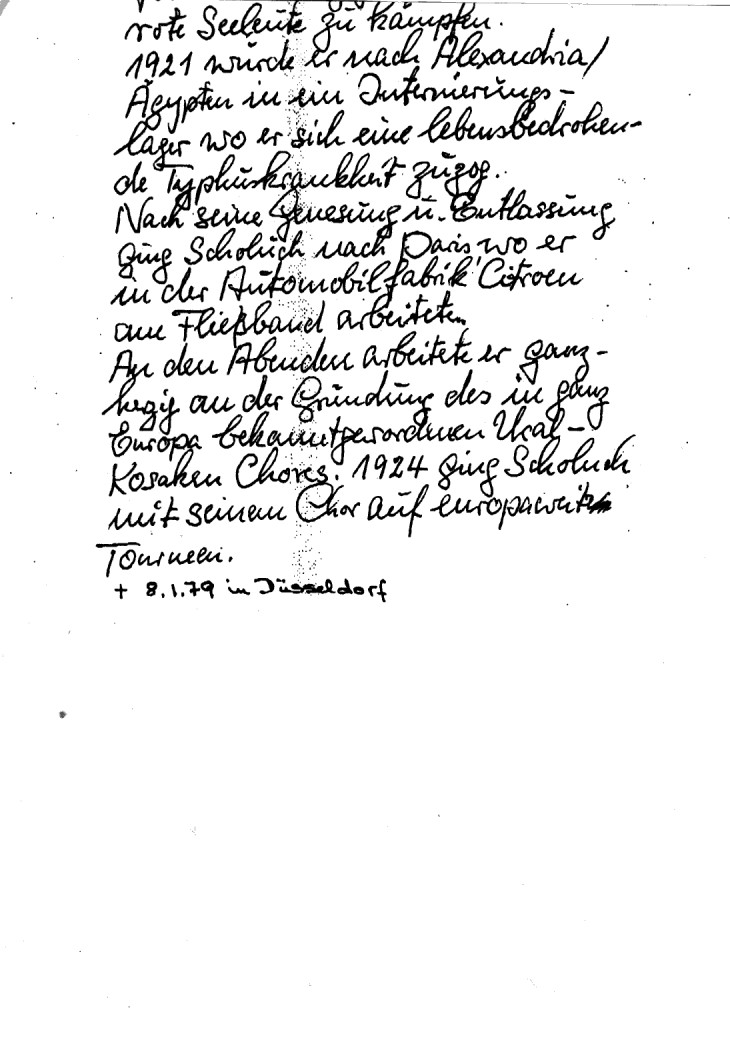 rote Seeleute zu kämpfen.
1921 wurde er nach Alexandria/
Ägypten in ein Internierungs-
lager wo er sich eine lebensbedrohen-
de Typhuskrankheit zuzog.
Nach seine Genesung u. Entlassung
ging Scholuch nach Paris wo er
in der Automobilfabrik Citroen
am Fließband arbeitete.
An den Abenden arbeitete er ganz-
an der Gründung des in ganz
Europa bekanntgewordenen Ural-
Kosaken Chores. 1924 ging Scholuch
mit seinem Chor auf europaweite
Tourneen.
+ 8.1.79 in Düsseldorf